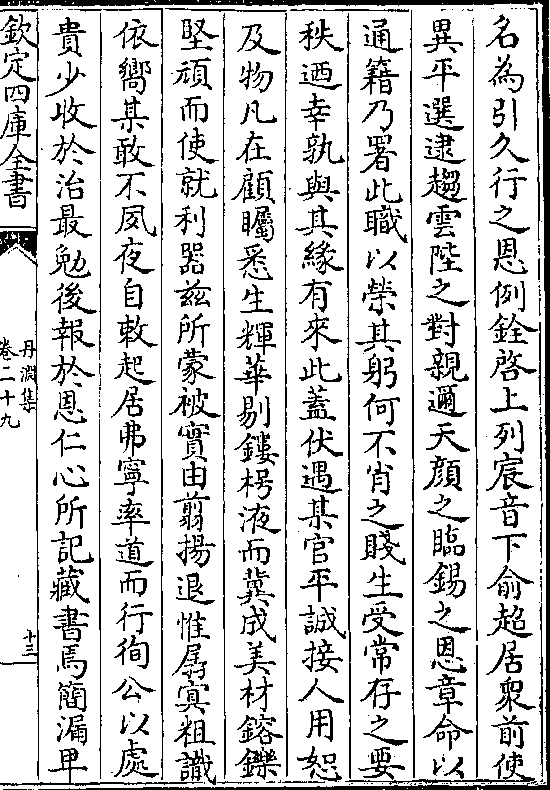 名為引久行之恩例銓啓上列宸音下俞超居衆前使
異平選逮趨雲陛之對親邇天顔之臨錫之恩章命以
通籍乃署此職以榮其躬何不肖之賤生受常存之要
秩迺幸孰與其緣有來此蓋伏遇某官平誠接人用恕
及物凡在顧矚悉生輝華剔鏤樗液而冀成美材鎔鑠
堅頑而使就利器兹所蒙被實由翦揚退惟孱寔粗識
依嚮某敢不夙夜自敕起居弗寧率道而行徇公以處
貴少收於治最勉後報於恩仁心所記藏書焉簡漏甲
欽定四庫全書
丹淵集
卷二十九
十三